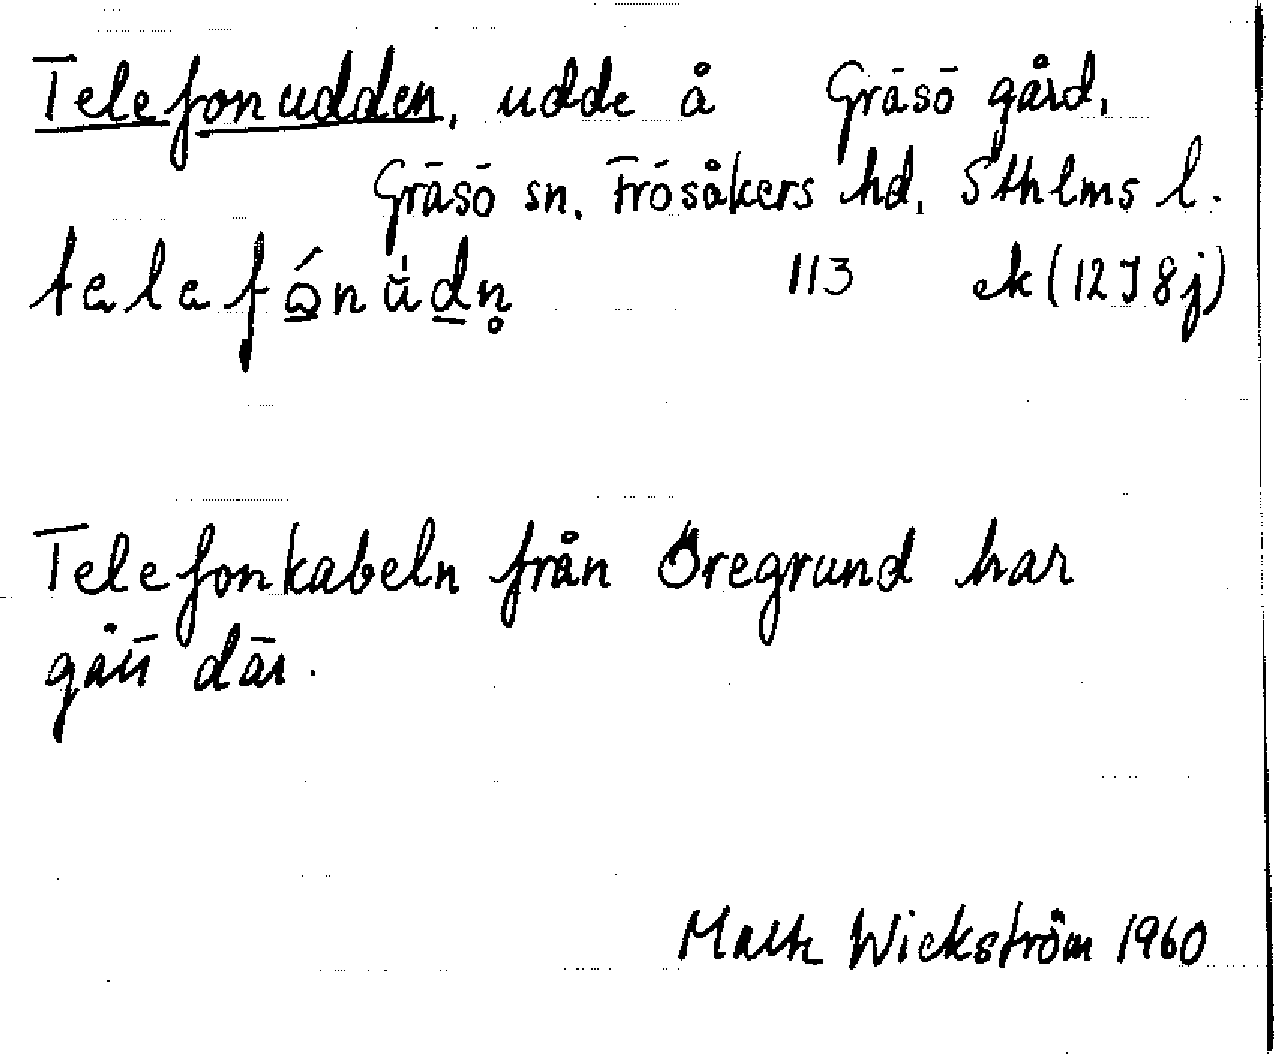 Telefonudden, udde å Gräsö gård,
Gräsö sn. Frösåkers hd, Sthlms l.
113 ek (12I8j)
Telefonkabeln från Öregrund har
gått där.
Malte Wickström 1960